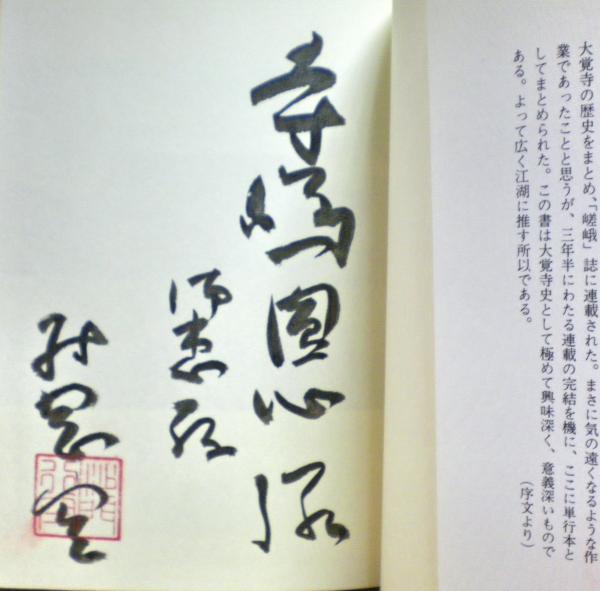 大覚寺の歴史をまとめ、「嵯峨」誌に連載された。まさに気の遠くなるような作
業であったことと思うが、三年半にわたる連載の完結を機に、ここに単行本と
してまとめられた。この書は大覚寺史として極めて興味深く、意義深いもので
ある。よって広く江湖に推す所以である。
（序文より）
寺嶋圓心様